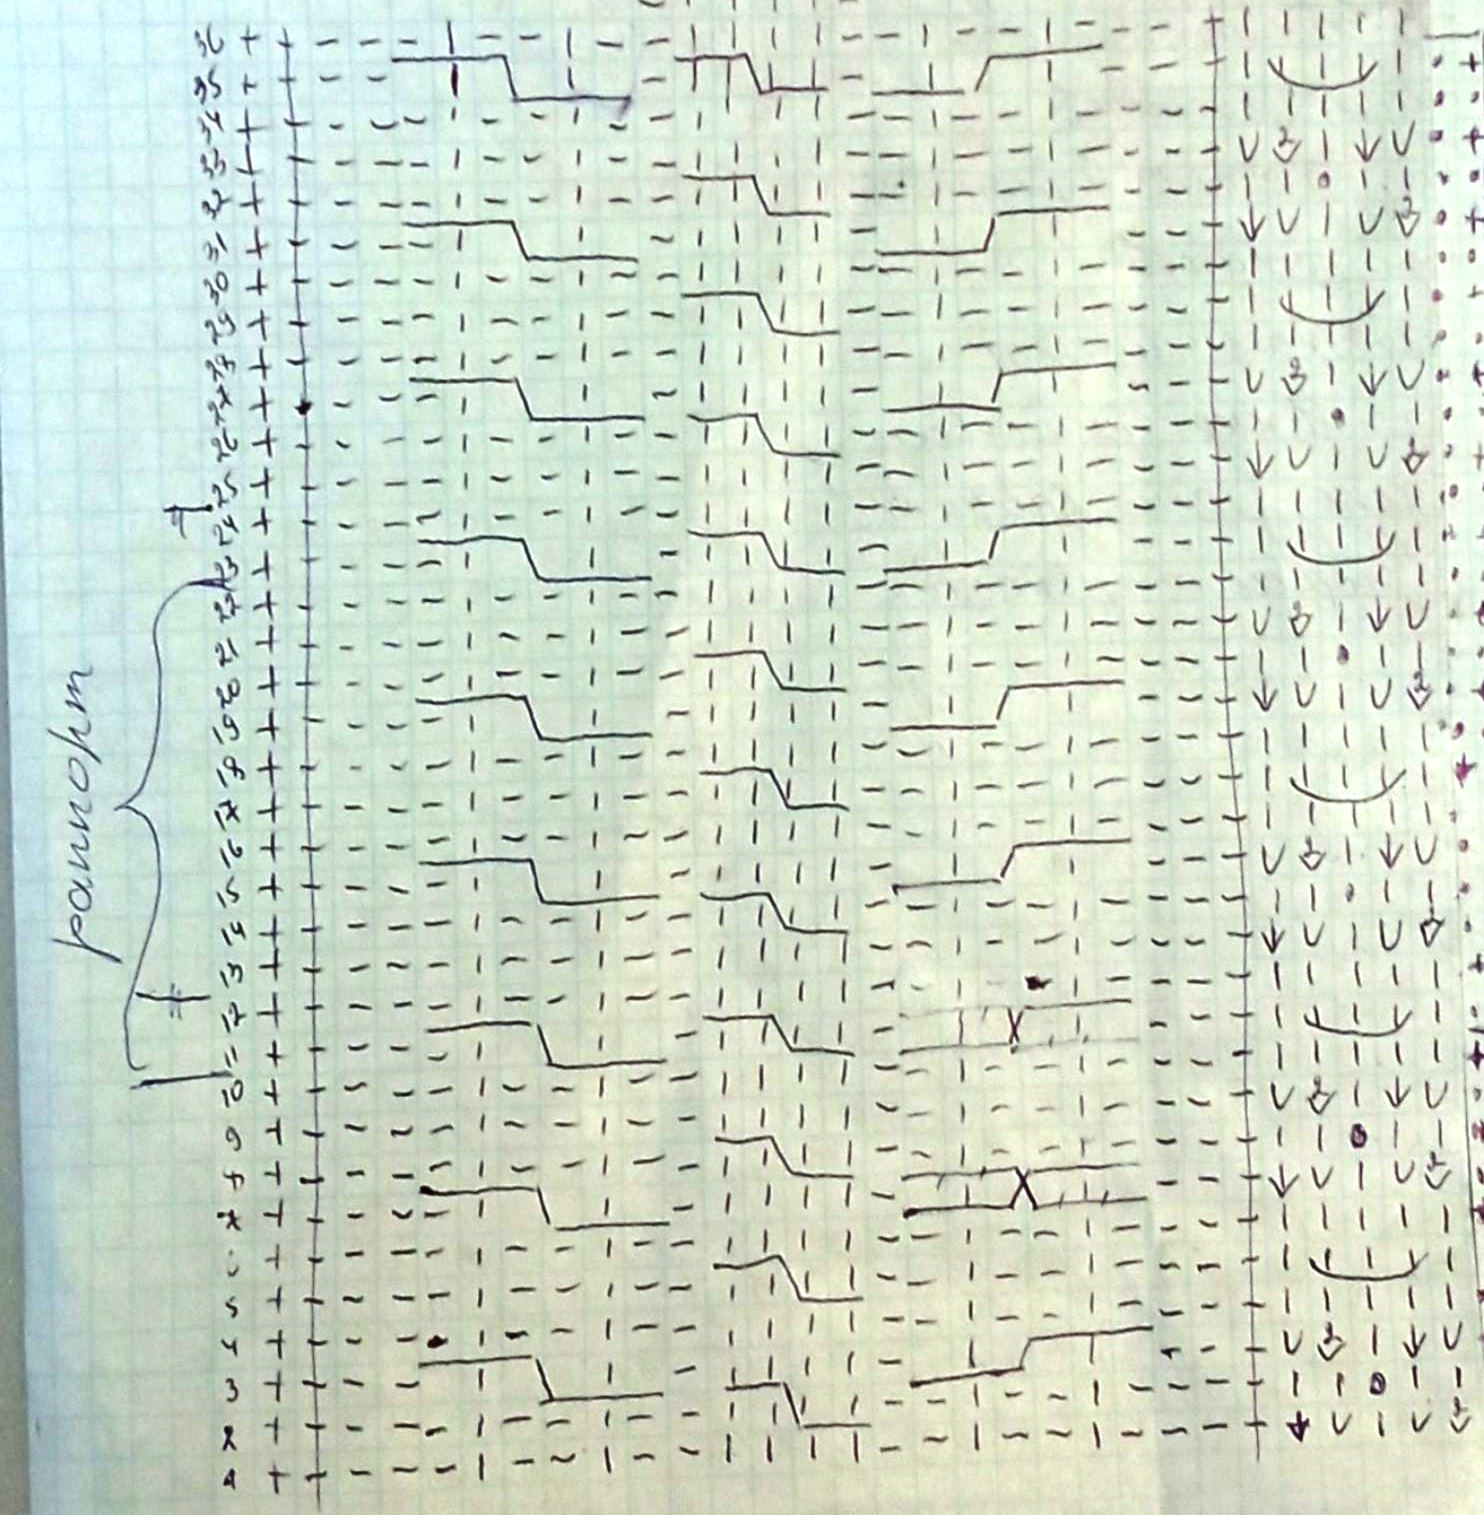 36
35
34
33
32
31
30
29
28
27
26
25
24
23
22
21
20
19
18
17
16
15
14
13
12
11
10
9
8
7
6
5
4
3
2
1
раппорт